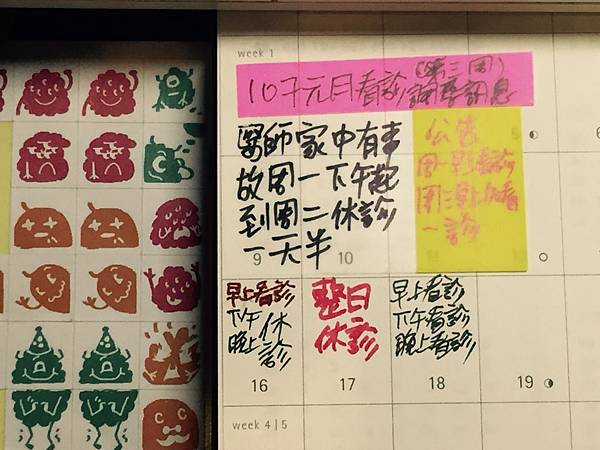 week 1
107元月看診(第三周)
調整訊息
醫師家中有事
故周一下午起
到周二休診
一天半
公告
周一早看診
周三早上加看
一診
5
9 10
早上看診
下午
晚上
休
診
整日
休診
早上看診
下午看診
晚上看診
16 17 18 19
week 4 | 5